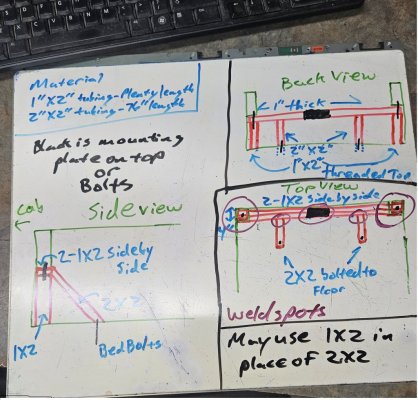 Material
1"X2" tubing - Plenty length
2"X2" tubing - 76" length
Black is mounting
plate on top
or
Bolts
Cab
Side view
2-1X2 Side by
Side
2X2
1X2
Bed Bolts
Back View
1" thick
2"X2"
1"X2"
threaded Too
Top View
2-1X2 side by side
2X2 bolted to
Floor
Weld spots
May use 1X2 in
place of 2X2